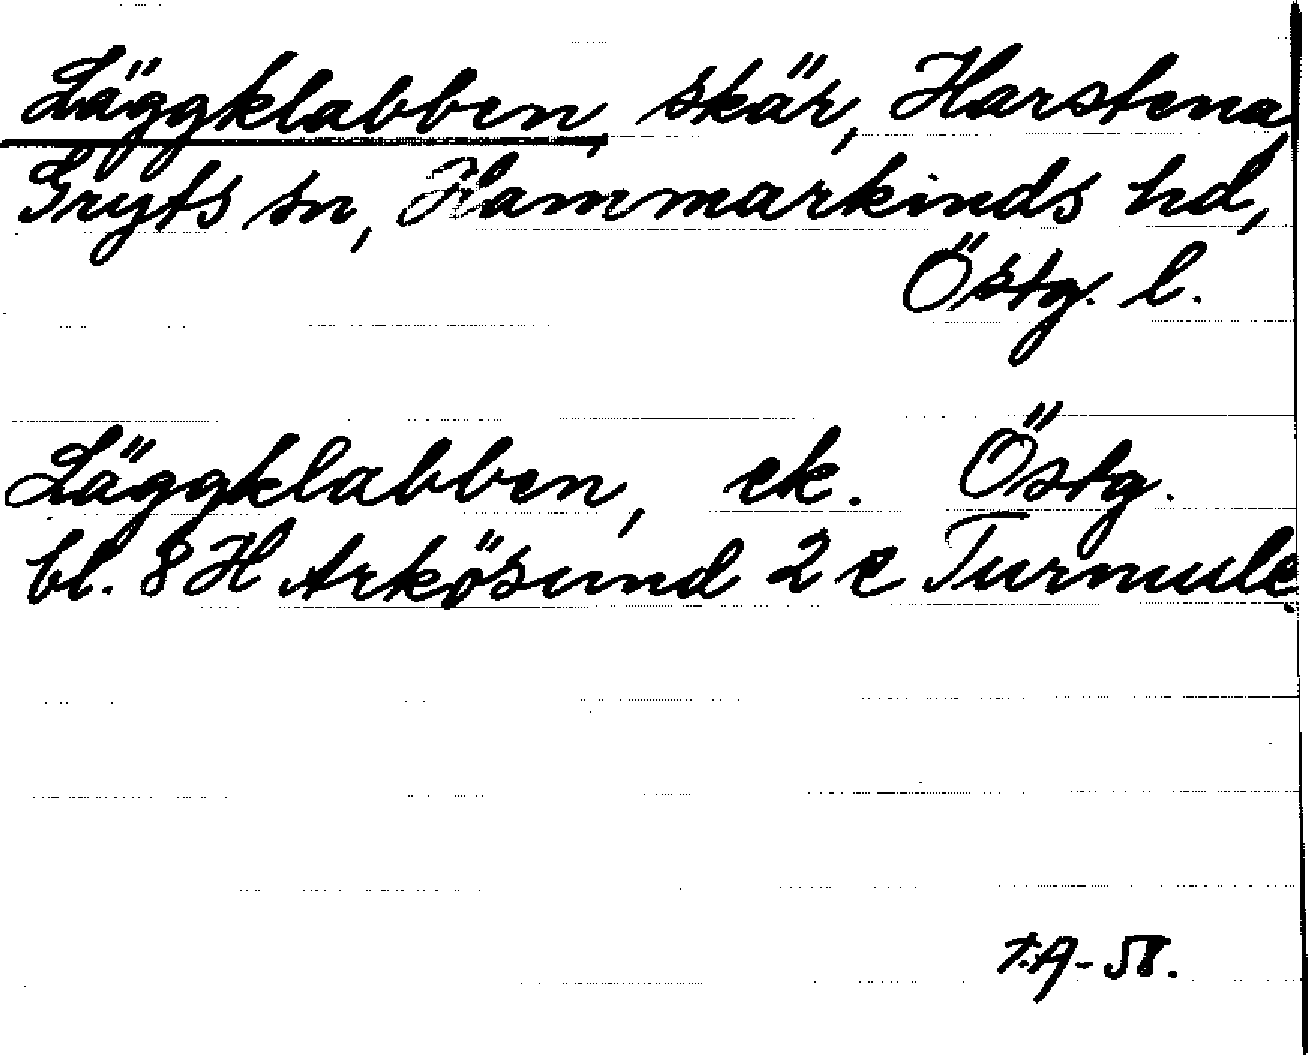 Läggklabben, skär, Harstena,
Gryts sn, Hammarkinds hd,
Östg. l.
Läggklabben, ek. Östg.
bl. 8 H Arkösund 2 c Turmule.
T.A-58.